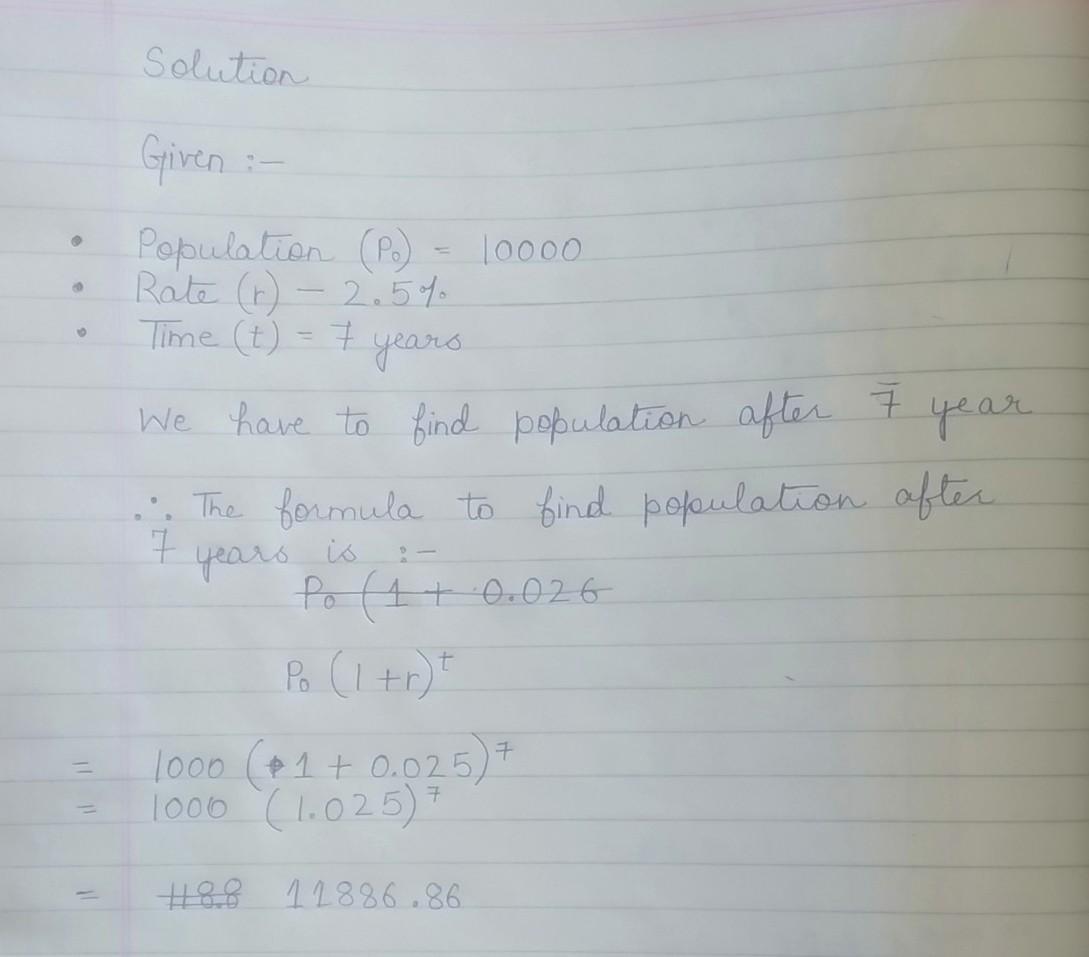 Solution
Given :-
• Population (P₀) = 10000
• Rate (r) - 2.5%
• Time (t) = 7 years
We have to find population after 7 year
∴ The formula to find population after
7 years is :-
P₀ (1 + 0.026
P₀ (1+r)ᵗ
= 1000 (1 + 0.025)⁷
= 1000 (1.025)⁷
= 1188 11886.86